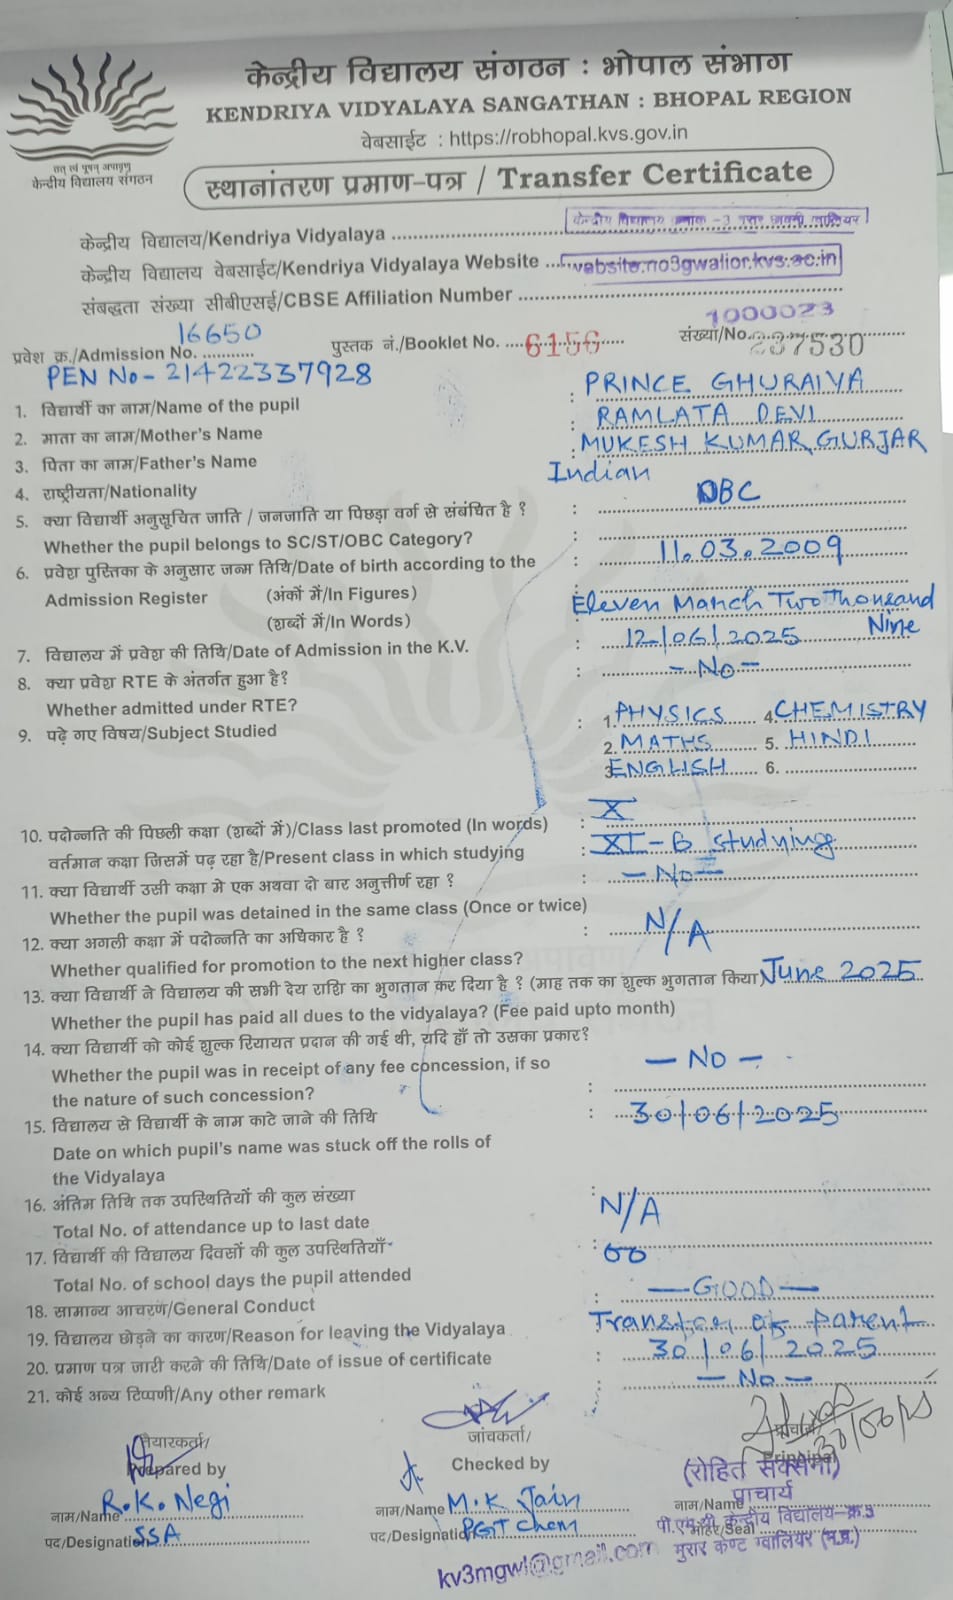 केन्द्रीय विद्यालय संगठन : भोपाल संभाग
KENDRIYA VIDYALAYA SANGATHAN : BHOPAL REGION
वेबसाईट : https://robhopal.kvs.gov.in
केन्द्रीय विद्यालय संगठन
स्थानांतरण प्रमाण-पत्र / Transfer Certificate
केन्द्रीय विद्यालय/Kendriya Vidyalaya केन्द्रीय विद्यालय क्रमांक -3 मुरार छावनी ग्वालियर
केन्द्रीय विद्यालय वेबसाईट/Kendriya Vidyalaya Website website.no3gwalior.kvs.ac.in
संबद्धता संख्या सीबीएसई/CBSE Affiliation Number 1000023
प्रवेश क्र./Admission No. 16650 पुस्तक नं./Booklet No. 6156 संख्या/No. 237530
PEN No - 21422337928
1. विद्यार्थी का नाम/Name of the pupil : PRINCE GHURAIYA
2. माता का नाम/Mother's Name : RAMLATA DEVI
3. पिता का नाम/Father's Name : MUKESH KUMAR GURJAR
4. राष्ट्रीयता/Nationality Indian
5. क्या विद्यार्थी अनुसूचित जाति / जनजाति या पिछड़ा वर्ग से संबंधित है ? : OBC
Whether the pupil belongs to SC/ST/OBC Category? :
6. प्रवेश पुस्तिका के अनुसार जन्म तिथि/Date of birth according to the : 11.03.2009
Admission Register (अंकों में/In Figures) : Eleven March Two Thousand
(शब्दों में/In Words) Nine
7. विद्यालय में प्रवेश की तिथि/Date of Admission in the K.V. : 12/06/2025
8. क्या प्रवेश RTE के अंतर्गत हुआ है? : - No -
Whether admitted under RTE?
9. पढ़े गए विषय/Subject Studied : 1. PHYSICS 4. CHEMISTRY
2. MATHS 5. HINDI
3. ENGLISH 6.
10. पदोन्नति की पिछली कक्षा (शब्दों में)/Class last promoted (In words) : X
वर्तमान कक्षा जिसमें पढ़ रहा है/Present class in which studying : XI - B studying
11. क्या विद्यार्थी उसी कक्षा मे एक अथवा दो बार अनुत्तीर्ण रहा ? : - No -
Whether the pupil was detained in the same class (Once or twice)
12. क्या अगली कक्षा में पदोन्नति का अधिकार है ? : N/A
Whether qualified for promotion to the next higher class?
13. क्या विद्यार्थी ने विद्यालय की सभी देय राशि का भुगतान कर दिया है ? (माह तक का शुल्क भुगतान किया) June 2025
Whether the pupil has paid all dues to the vidyalaya? (Fee paid upto month)
14. क्या विद्यार्थी को कोई शुल्क रियायत प्रदान की गई थी, यदि हाँ तो उसका प्रकार?
Whether the pupil was in receipt of any fee concession, if so - No -
the nature of such concession? :
15. विद्यालय से विद्यार्थी के नाम काटे जाने की तिथि : 30/06/2025
Date on which pupil's name was stuck off the rolls of
the Vidyalaya
16. अंतिम तिथि तक उपस्थितियों की कुल संख्या : N/A
Total No. of attendance up to last date
17. विद्यार्थी की विद्यालय दिवसों की कुल उपस्थितियाँ : 00
Total No. of school days the pupil attended
18. सामान्य आचरण/General Conduct : - GOOD -
19. विद्यालय छोड़ने का कारण/Reason for leaving the Vidyalaya Transfer of parent
20. प्रमाण पत्र जारी करने की तिथि/Date of issue of certificate : 30/06/2025
21. कोई अन्य टिप्पणी/Any other remark : - No -
तैयारकर्ता/ जांचकर्ता/ प्राचार्य
Prepared by Checked by Principal
(रोहित सक्सेना)
नाम/Name R.K. Negi नाम/Name M.K Jain नाम/Name प्राचार्य
पद/Designation SSA पद/Designation PGT Chem मोहर/Seal पी.एम.श्री केन्द्रीय विद्यालय-क्र.3
मुरार केण्ट ग्वालियर (म.प्र.)
kv3mgwl@gmail.com